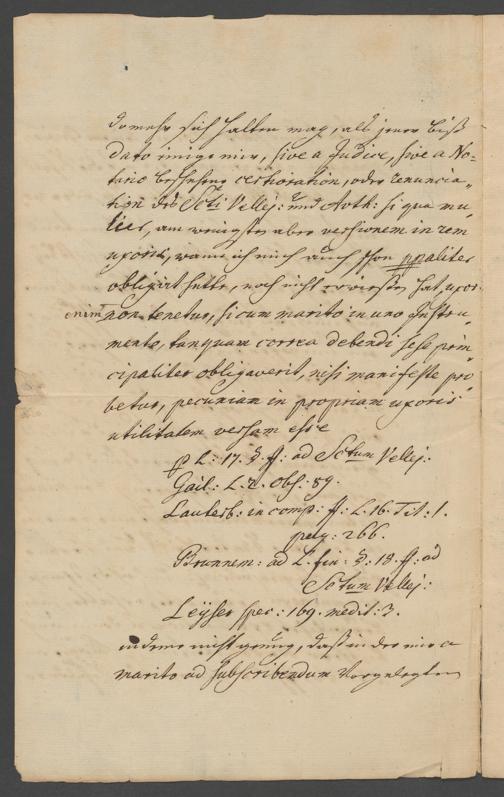 do mehr sich halten mag, als jener biß
dato einige mir, sive a Judice, sive a No-
tario beschehene certioration, oder renuncia-
tion des Scti Vellej: und Auth: si qua mu
lier, am wenigsten aber versionem in rem
uxoris, wann ich mich auch schon ppaliter
obligirt hette, noch nicht erwiesen hat, uxor
enim non tenetur, si cum marito in uno Instru-
mento, tanquam correa debendi sese prin-
cipaliter obligaverit, nisi manifeste pro
betur, pecuniam in propriam uxoris
utilitatem versam esse
p L: 17. §. ff: ad Sctum Vellej:
Gail: L. 2. obs: 89.
Lauterb: in comp: ff: L. 16. Tit: 1.
pag: 266.
Brunnem: ad L. fin: §: 18. ff: ad
Sctum Vellej:
Leÿser spec: 169. medit: 3.
indeme nicht genug, daß in der mir a
marito ad subscribendum vorgelegten